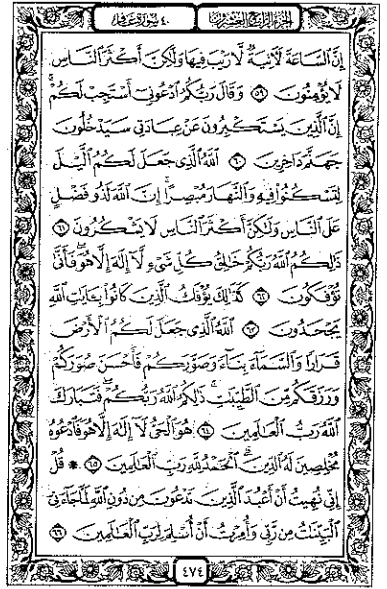 الجزء الرابع والعشرون
٤٠ سورة غافر
إِنَّ ٱلسَّاعَةَ لَأٓتِيَةٌ لَّا رَيْبَ فِيهَا وَلَٰكِنَّ أَكْثَرَ ٱلنَّاسِ
لَا يُؤْمِنُونَ ٥٩ وَقَالَ رَبُّكُمُ ٱدْعُونِىٓ أَسْتَجِبْ لَكُمْ ۚ
إِنَّ ٱلَّذِينَ يَسْتَكْبِرُونَ عَنْ عِبَادَتِى سَيَدْخُلُونَ
جَهَنَّمَ دَاخِرِينَ ٦٠ ٱللَّهُ ٱلَّذِى جَعَلَ لَكُمُ ٱلَّيْلَ
لِتَسْكُنُوا۟ فِيهِ وَٱلنَّهَارَ مُبْصِرًا ۚ إِنَّ ٱللَّهَ لَذُو فَضْلٍ
عَلَى ٱلنَّاسِ وَلَٰكِنَّ أَكْثَرَ ٱلنَّاسِ لَا يَشْكُرُونَ ٦١
ذَٰلِكُمُ ٱللَّهُ رَبُّكُمْ خَٰلِقُ كُلِّ شَىْءٍ لَّآ إِلَٰهَ إِلَّا هُوَ ۖ فَأَنَّىٰ
تُؤْفَكُونَ ٦٢ كَذَٰلِكَ يُؤْفَكُ ٱلَّذِينَ كَانُوا۟ بِـَٔايَٰتِ ٱللَّهِ
يَجْحَدُونَ ٦٣ ٱللَّهُ ٱلَّذِى جَعَلَ لَكُمُ ٱلْأَرْضَ
قَرَارًا وَٱلسَّمَآءَ بِنَآءً وَصَوَّرَكُمْ فَأَحْسَنَ صُوَرَكُمْ
وَرَزَقَكُم مِّنَ ٱلطَّيِّبَٰتِ ۚ ذَٰلِكُمُ ٱللَّهُ رَبُّكُمْ ۖ فَتَبَارَكَ
ٱللَّهُ رَبُّ ٱلْعَٰلَمِينَ ٦٤ هُوَ ٱلْحَىُّ لَآ إِلَٰهَ إِلَّا هُوَ فَٱدْعُوهُ
مُخْلِصِينَ لَهُ ٱلدِّينَ ۗ ٱلْحَمْدُ لِلَّهِ رَبِّ ٱلْعَٰلَمِينَ ٦٥ ۞ قُلْ
إِنِّى نُهِيتُ أَنْ أَعْبُدَ ٱلَّذِينَ تَدْعُونَ مِن دُونِ ٱللَّهِ لَمَّا جَآءَنِىَ
ٱلْبَيِّنَٰتُ مِن رَّبِّى وَأُمِرْتُ أَنْ أُسْلِمَ لِرَبِّ ٱلْعَٰلَمِينَ ٦٦
٤٧٤